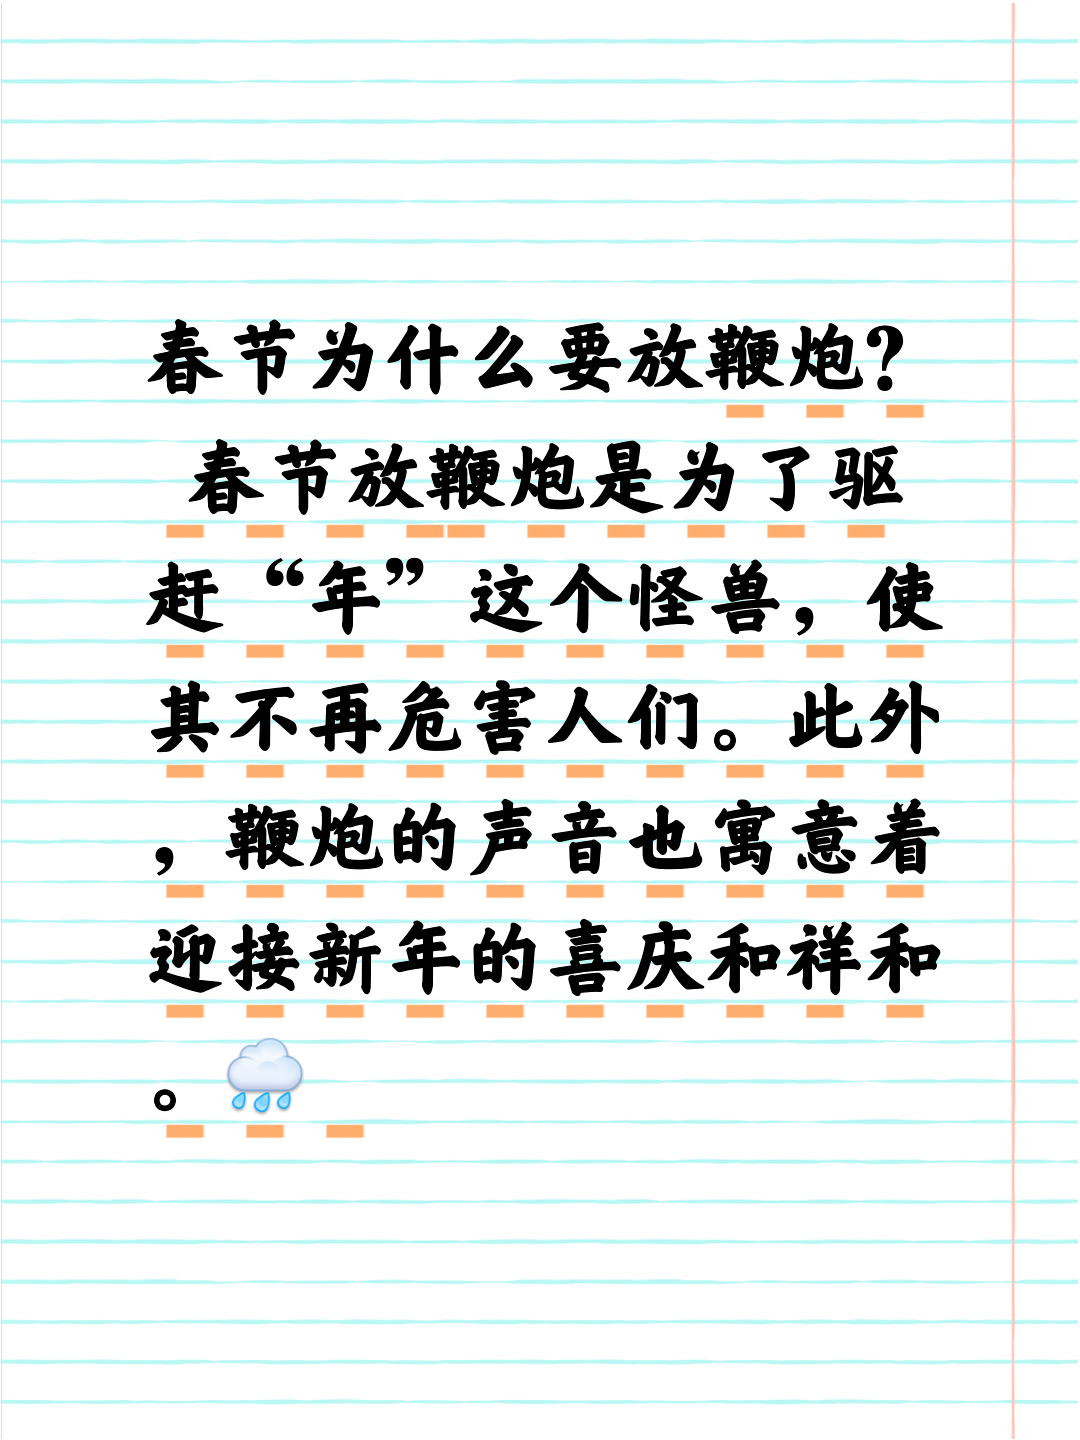 春节为什么要放鞭炮？
春节放鞭炮是为了驱
赶“年”这个怪兽，使
其不再危害人们。此外
，鞭炮的声音也寓意着
迎接新年的喜庆和祥和
。🌧️